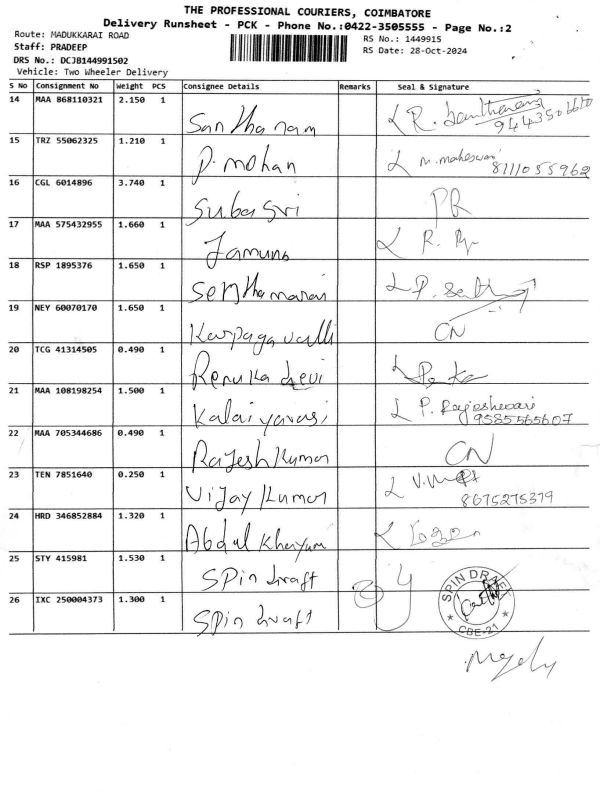 THE PROFESSIONAL COURIERS, COIMBATORE
Delivery Runsheet - PCK - Phone No.:0422-3505555 - Page No.:2
Route: MADUKKARAI ROAD
RS No.: 1449915
Staff: PRADEEP
RS Date: 28-Oct-2024
DRS No.: DCJB144991502
Vehicle: Two Wheeler Delivery
S No Consignment No Weight PCS Consignee Details Remarks Seal & Signature
14 MAA 868110321 2.150 1 Santhanam R. Santhanam
9443506610
15 TRZ 55062325 1.210 1 P. mohan M. maheswari
8111055962
16 CGL 6014896 3.740 1 Subasri PR
17 MAA 575432955 1.660 1 Jamuna R.
18 RSP 1895376 1.650 1 Senthamarai P.
19 NEY 60070170 1.650 1 Karpagavalli CN
20 TCG 41314505 0.490 1 Renuka devi
21 MAA 108198254 1.500 1 Kalaiyarasi P. Rajeshwari
9585565607
22 MAA 705344686 0.490 1 Rajesh Kumar CN
23 TEN 7851640 0.250 1 Vijay Kumar
8675275379
24 HRD 346852884 1.320 1 Abdul Khaiyum
25 STY 415981 1.530 1 Spin draft
26 IXC 250004373 1.300 1 Spin draft
SPIN DRAFT
CBE-21